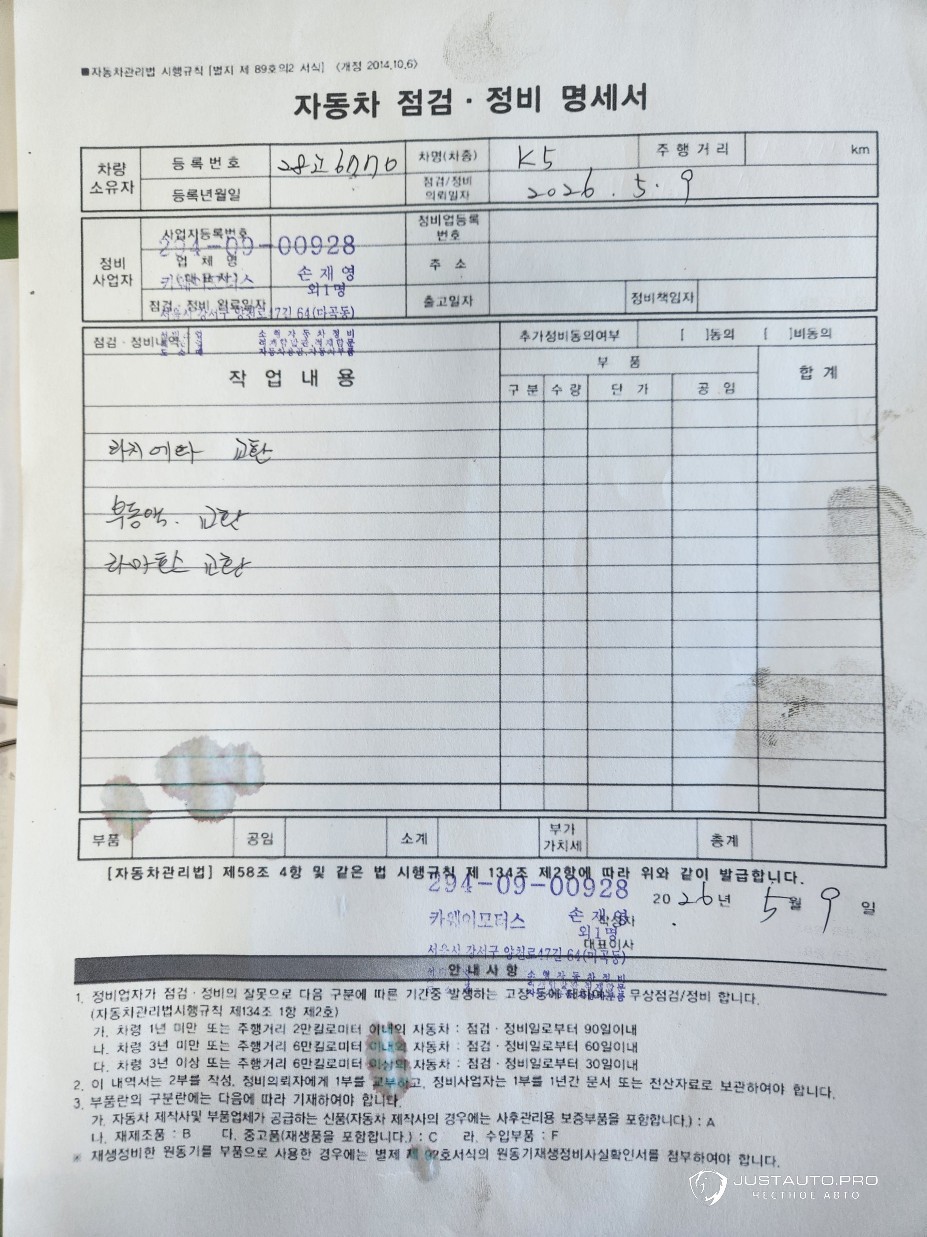 ■자동차관리법 시행규칙 [별지 제 89호의2 서식] <개정 2014.10.6>
자동차 점검 · 정비 명세서
차량 소유자
등록번호
차명(차종)
K5
주행거리
km
등록년월일
점검/정비 의뢰일자
2026. 5. 9
정비 사업자
사업자등록번호
294-09-00928
정비업등록 번호
업체명
손재영
외1명
주소
점검 · 정비 완료일자
서울시 강서구 양천로47길 64(마곡동)
출고일자
정비책임자
점검 · 정비내역
추가정비동의여부
[ ]동의 [ ]비동의
작업내용
부품
합계
구분
수량
단가
공임
라지에타 교환
부동액. 교환
라아호스 교환
부품
공임
소계
부가 가치세
총계
[자동차관리법] 제58조 4항 및 같은 법 시행규칙 제 134조 제2항에 따라 위와 같이 발급합니다.
294-09-00928
2026년 5월 9일
카웨이모터스
손재영
외1명
작성자
대표이사
서울시 강서구 양천로47길 64(마곡동)
안내사항
1. 정비업자가 점검 · 정비의 잘못으로 다음 구분에 따른 기간중 발생하는 고장 등에 대하여는 무상점검/정비 합니다.
(자동차관리법시행규칙 제134조 1항 제2호)
가. 차령 1년 미만 또는 주행거리 2만킬로미터 이내의 자동차 : 점검 · 정비일로부터 90일이내
나. 차령 3년 미만 또는 주행거리 6만킬로미터 이내의 자동차 : 점검 · 정비일로부터 60일이내
다. 차령 3년 이상 또는 주행거리 6만킬로미터 이상의 자동차 : 점검 · 정비일로부터 30일이내
2. 이 내역서는 2부를 작성, 정비의뢰자에게 1부를 교부하고, 정비사업자는 1부를 1년간 문서 또는 전산자료로 보관하여야 합니다.
3. 부품란의 구분란에는 다음에 따라 기재하여야 합니다.
가. 자동차 제작사및 부품업체가 공급하는 신품(자동차 제작사의 경우에는 사후관리용 보증부품을 포함합니다.) : A
나. 재제조품 : B 다. 중고품(재생품을 포함합니다.) : C 라. 수입부품 : F
※ 재생정비한 원동기를 부품으로 사용한 경우에는 별제 제 92호서식의 원동기재생정비사실확인서를 첨부하여야 합니다.
JUSTAUTO.PRO
ЧЕСТНОЕ АВТО